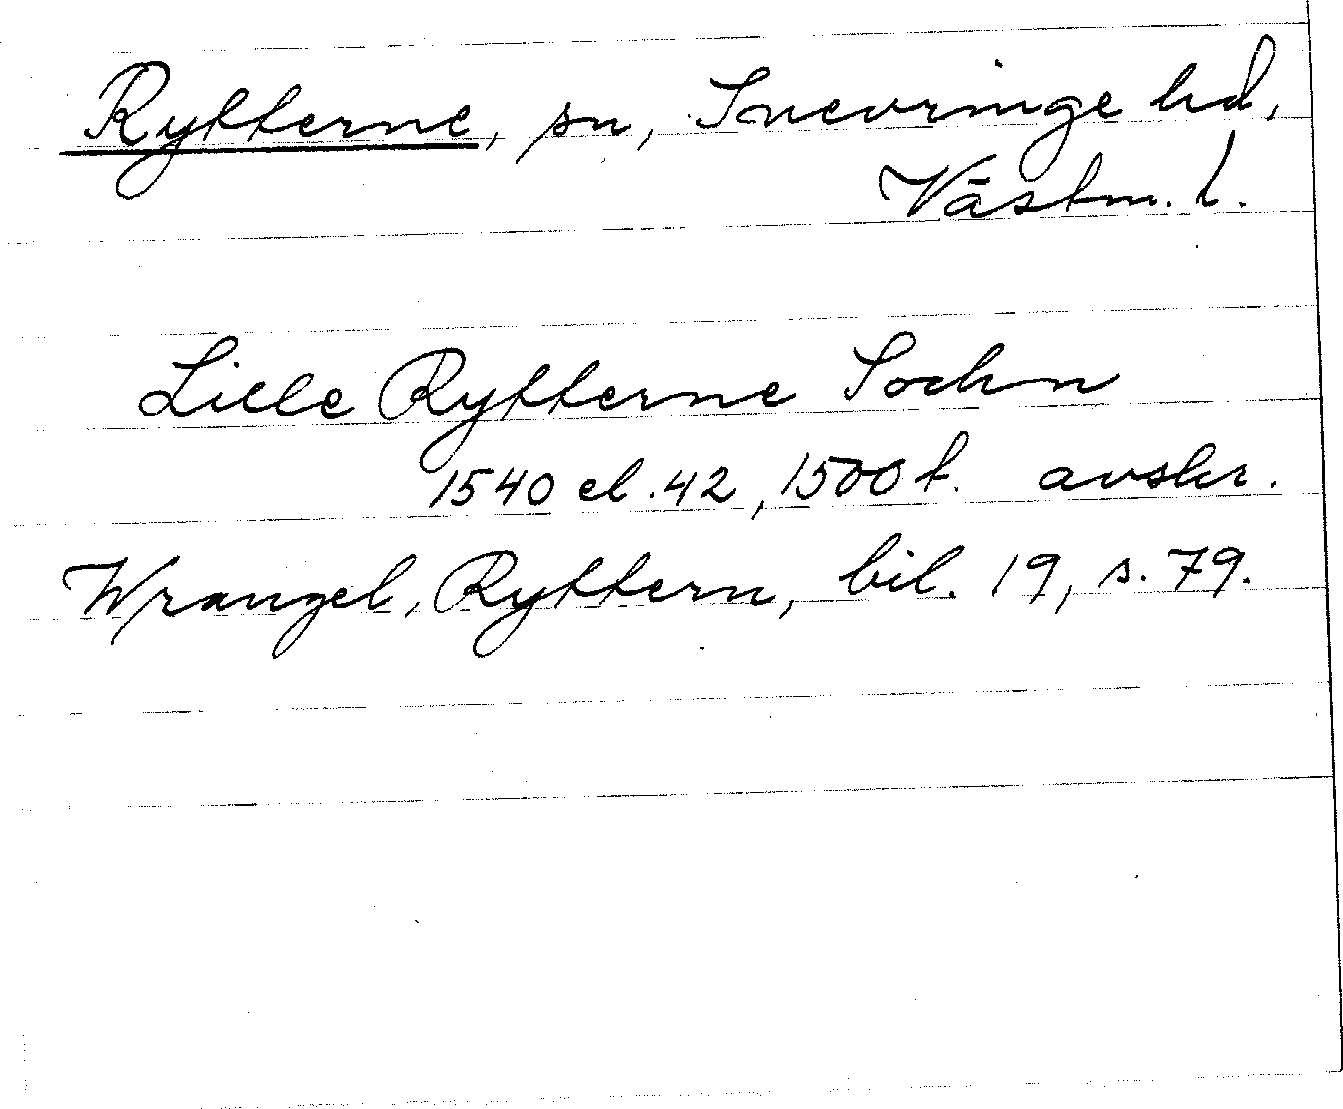 Rytterne, sn, Snevringe hd,
Västm. l.
Lille Rytterne Sochn
1540 el. 42, 1500t. avskr.
Wrangel, Ryttern, bil. 19, s. 79.